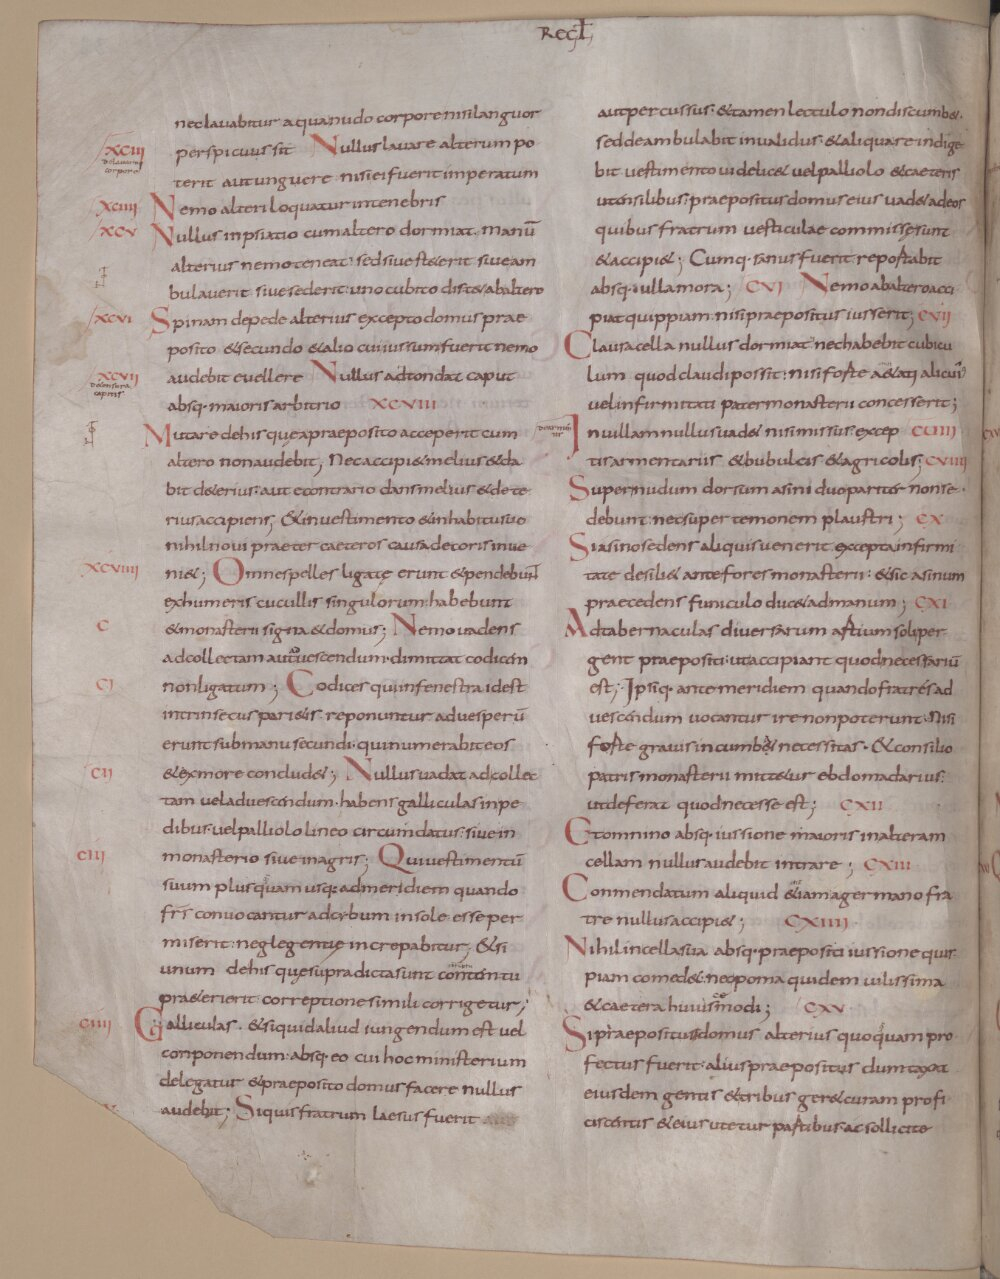 Regł
nec lavabitur aqua nudo corpore nisi languor
XCIII
de lavando corpore
perspicuus sit Nullus lavare alterum po
terit aut unguere nisi ei fuerit imperatum
XCIIII
Nemo alteri loquatur in tenebris
XCV
Nullus in psiatio cum altero dormiat. manū
alterius nemo teneat. sed sive steterit sive am
bulaverit sive sederit. uno cubito distet ab altero
XCVI
Spinam de pede alterius excepto domus prae
posito & secundo & alio cui iussum fuerit nemo
XCVII
de tonsura capitis
audebit evellere Nullus adtondat caput
absq· maioris arbitrio XCVIII
Mutare de his que a praeposito acceperit cum
altero non audebit; Nec accipi& melius & da
bit deterius. aut econtrario dans melius & dete
rius accipiens; & in vestimento & in habitu suo
nihil novi praeter caeteros causa decoris inve
XCVIIII
ni&; Omnes pelles ligatę erunt & pendebunt
ex humeris cucullis singulorum. habebunt
C
& monasterii signa & domus; Nemo vadens
ad collectam aut vescendum. dimittat codicem
CI
non ligatum; Codices qui in fenestra id est
intrinsecus parietis reponuntur ad vesperū
erunt sub manu secundi. qui numerabit eos
CII
& ex more conclud&; Nullus vadat ad collec
tam vel ad vescendum. habens galliculas in pe
dibus. vel palliolo lineo circumdatus. sive in
CIII
monasterio sive in agris; Qui vestimentū
suum plusquam usq· ad meridiem quando
frs convocantur ad cibum in sole esse per
miserit. neglegentię increpabitur; & si
unum de his que supra dicta sunt contentu
praeterierit. correptione simili corrigetur;
CIIII
Galliculas. & si quid aliud iungendum est vel
conponendum. absq· eo cui hoc ministerium
delegatur & praeposito domus facere nullus
audebit; Si quis fratrum laesus fuerit
aut percussus. & tamen lectulo non discumb&.
sed deambulabit invalidus. & aliqua re indige
bit vestimento videlic& vel palliolo & caeteris
utensilibus. praepositus domus eius vad& ad eos
quibus fratrum vesticulae commissę sunt
& accipi&; Cumq· sanus fuerit. repostabit
absq· ulla mora; CVI Nemo ab altero acci
piat quippiam. nisi praepositus iusserit; CVII
Clausa cella nullus dormiat. nec habebit cubicu
lum quod claudi possit. nisi foste aetati alicuius
vel infirmitati pater monasterii concesserit;
In villam nullus vad& nisi missus. excep CVIII
tis armentariis & bubulcis & agricolis; CVIIII
Super nudum dorsum asini duo pariter non se
debunt. nec super temonem plaustri; CX
Si asino sedens aliquis venerit. excepta infirmi
tate desili& ante fores monasterii. & sic asinum
praecedens funiculo duc& ad manum; CXI
Ad tabernaculas diversarum astium soli per
gent praepositi. ut accipiant quod necessariū
est; Ipsiq· ante meridiem quando fratres ad
vescendum vocantur ire non poterunt. Nisi
foste gravis incumb& necessitas. & consilio
patris monasterii mittetur ebdomadarius.
ut deferat quod necesse est; CXII
Et omnino absq· iussione maioris in alteram
cellam nullus audebit intrare; CXIII
Conmendatum aliquid etiam a germano fra
tre nullus accipi&; CXIIII
Nihil in cella sua absq· praepositi iussione quis
piam comed&. ne poma quidem vilissima
& caetera huiusmodi; CXV
Si praepositus domus alterius quoquam pro
fectus fuerit. alius praepositus dumtaxat
eiusdem gentis & tribus ger& curam profi
ciscentis & eius utetur pastibus ac sollicite